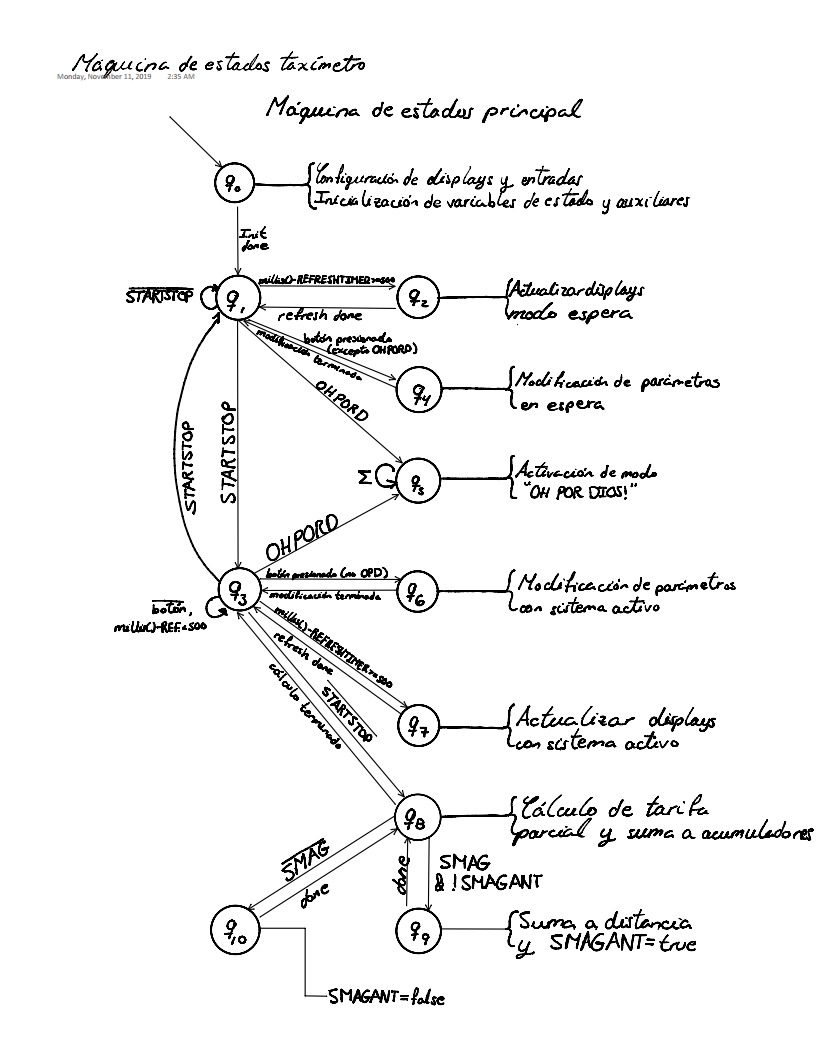 Máquina de estados taxímetro
Monday, November 11, 2019 2:35 AM
Máquina de estados principal
q0
Configuración de displays y entradas
Inicialización de variables de estado y auxiliares
Init
done
STARTSTOP
q1
millis()-REFRESHTIMER>=500
refresh done
q2
Actualizar displays
modo espera
botón presionado
(excepto OHPORD)
modificación terminada
q4
Modificación de parámetros
en espera
OHPORD
STARTSTOP
STARTSTOP
Σ
q5
Activación de modo
"OH POR DIOS!"
OHPORD
q3
botón,
millis()-REF.<500
botón presionado (no OPD)
modificación terminada
q6
Modificación de parámetros
con sistema activo
millis()-REFRESHTIMER>=500
refresh done
q7
Actualizar displays
con sistema activo
STARTSTOP
cálculo terminado
q8
Cálculo de tarifa
parcial y suma a acumuladores
SMAG
done
done
SMAG
& !SMAGANT
q10
q9
Suma a distancia
y SMAGANT=true
SMAGANT=false